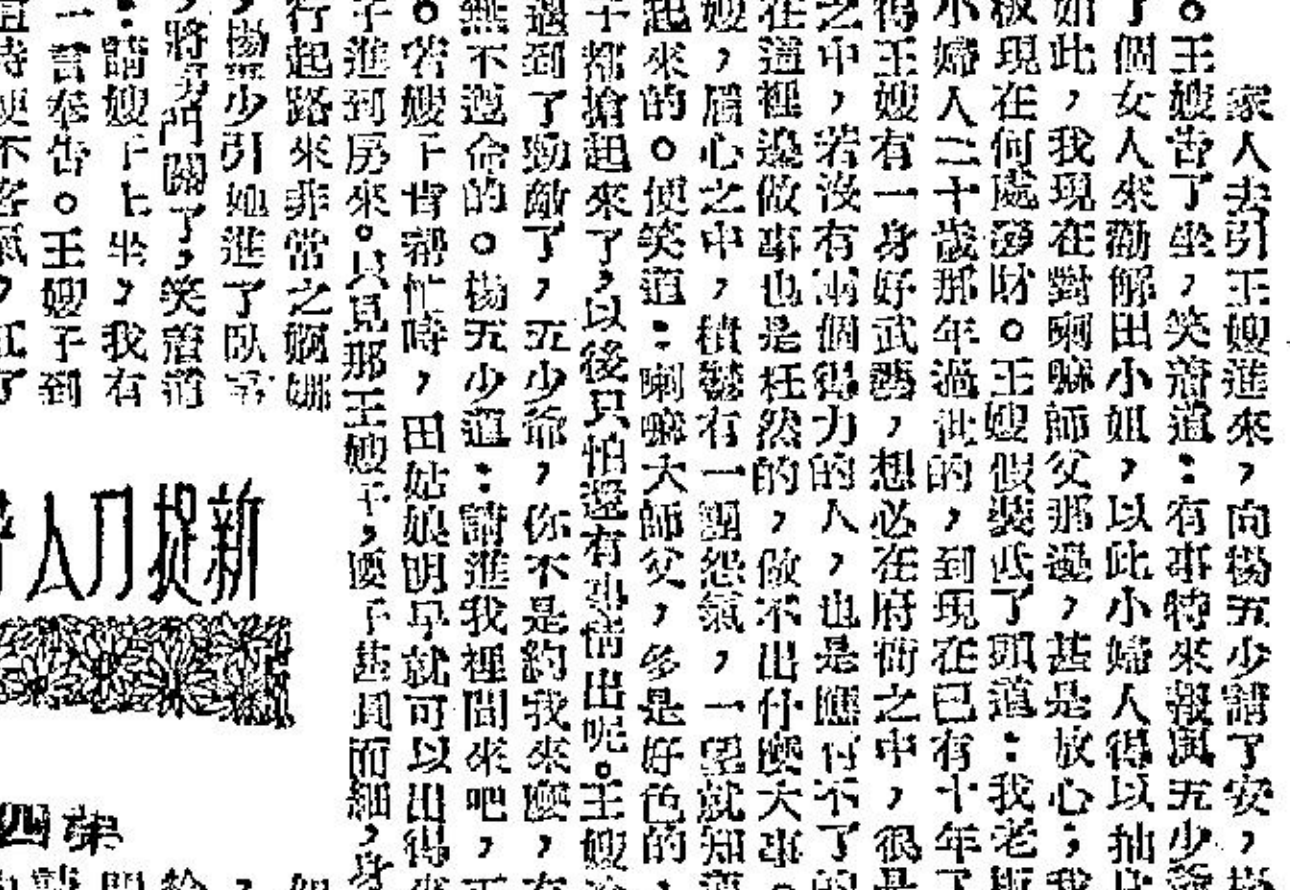 家人去引王嫂進來，向楊五少請了安，
。王嫂告了坐，笑着道：有事特來報與五少爺
了個女人來勸解田小姐，以此小婦人得以抽身
如此，我現在對喇嘛師父那邊，甚是放心；我
板現在何處發財。王嫂假裝低了頭道：我老板
小婦人二十歲那年過世的，到現在已有十年了
得王嫂有一身好武藝，想必在府衙之中，很是
之中，若沒有兩個得力的人，也是應付不了的
在這裡邊做事也是枉然的，做不出什麼大事。
嫂，眉心之中，積有一團怨氣，一望就知道
起來的。便笑道：喇嘛大師父，多是好色的，
子都搶起來了，以後只怕還有事情出呢。王嫂
遇到了勁敵了，五少爺，你不是約我來麼，有
無不遵命的。楊五少道：請進我裡間來吧，
。若嫂子肯幫忙時，田姑娘明早就可以出得來
子進到房來。只見那王嫂子，腰子甚圓而細，身
行起路來非常之婀娜
，楊五少引她進了臥室
，將房門關了，笑着道
：請嫂子上坐，我有
一言奉告。王嫂子到
時便不客氣，
新捉刀人
第四